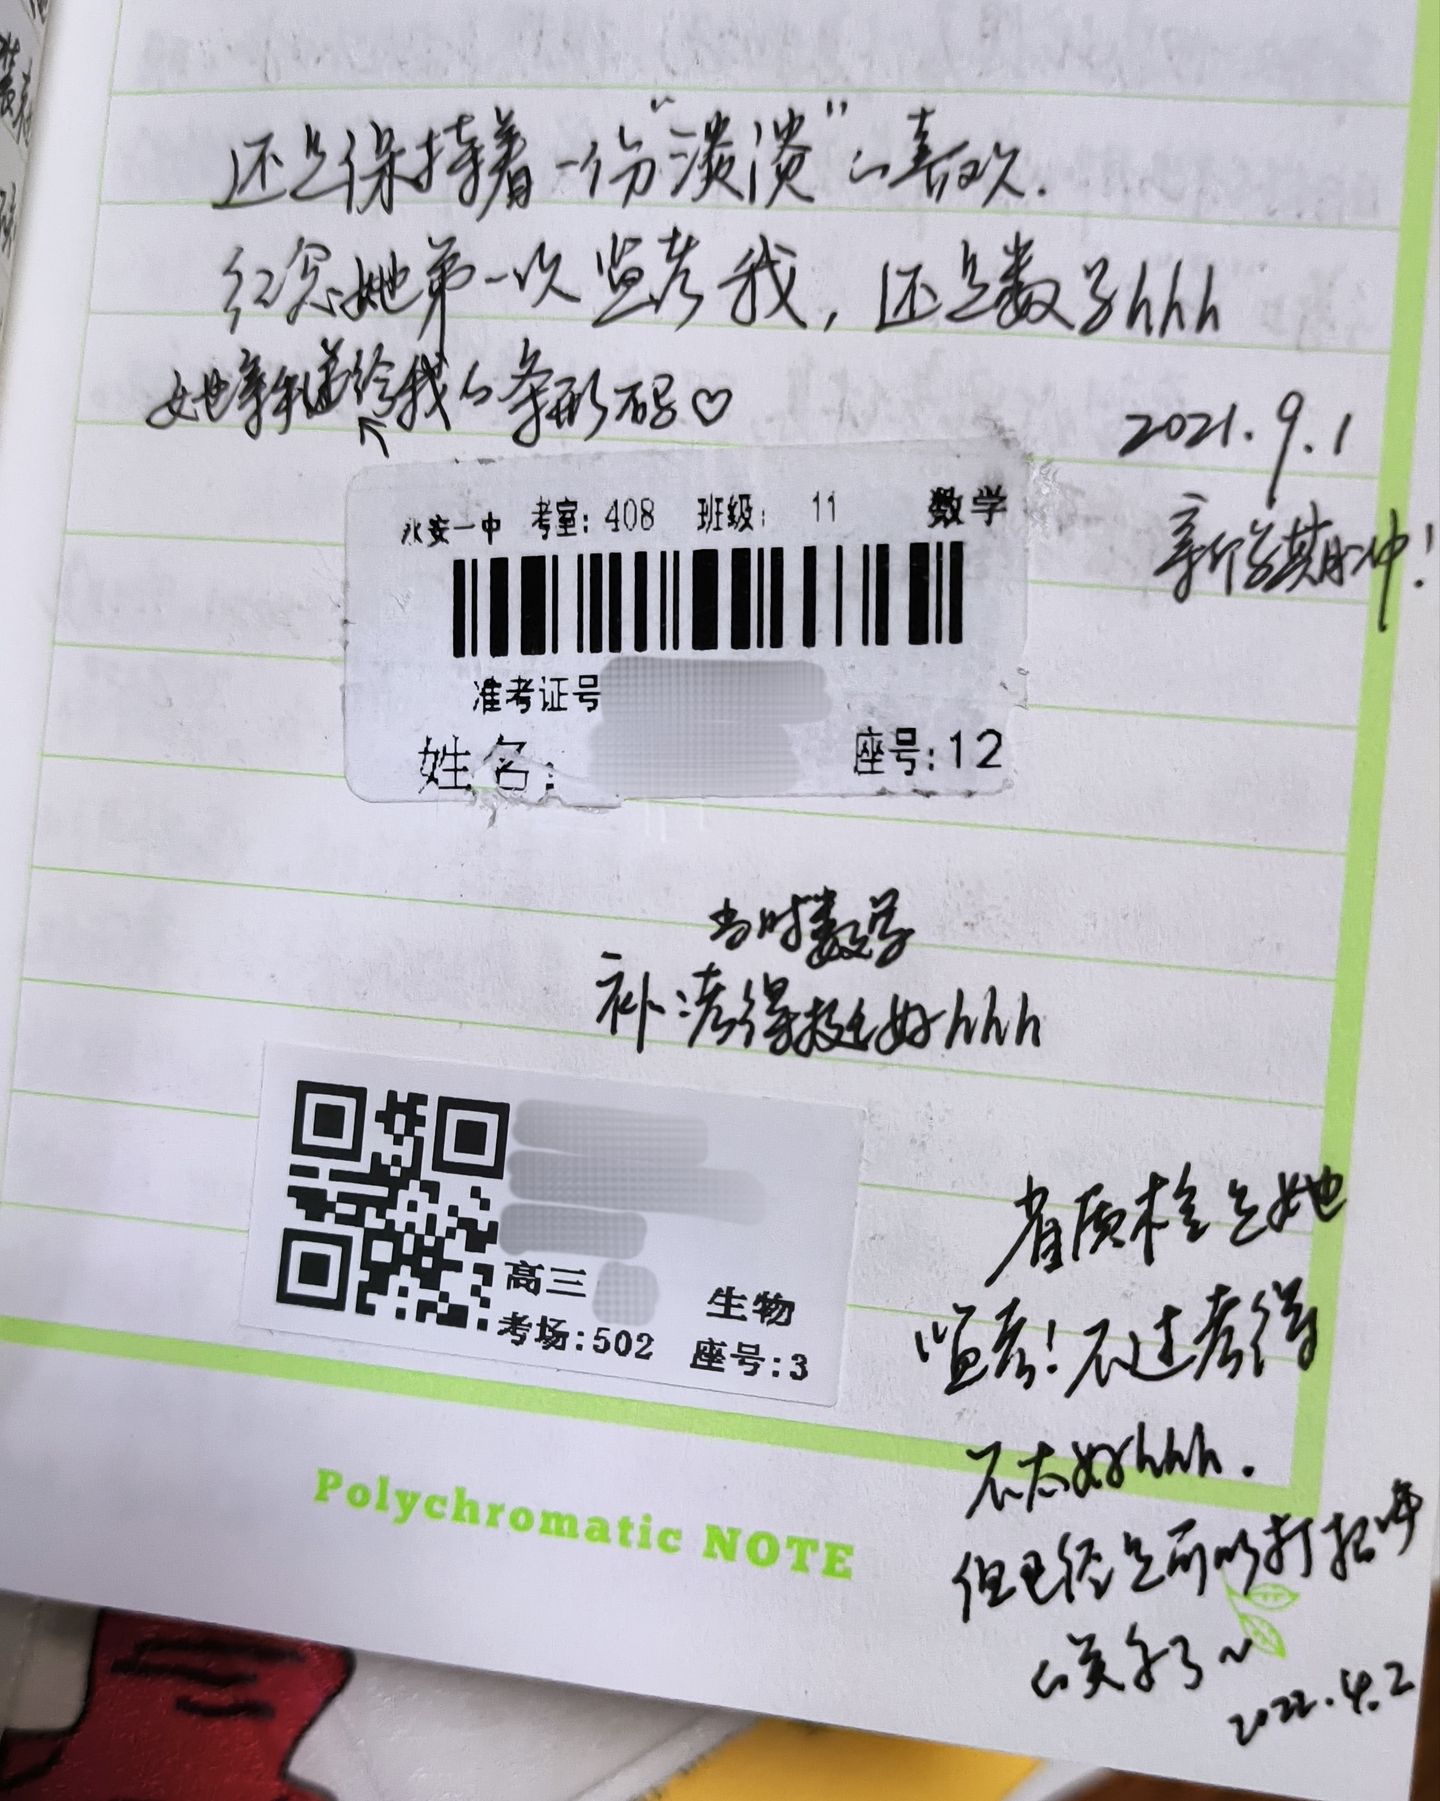 还是保持着一份“淡淡”的喜欢.
纪念她第一次监考我，还是数学hhh
她亲手递给我的条形码♡
2021.9.1
新学期加油！
永安一中 考室: 408 班级: 11 数学
准考证号
姓名:
座号:12
当时数学
补:考得挺好hhh
高三
生物
考场:502 座号:3
省质检是她
监考！不过考得
不太好hhh.
但已经是可以打招呼
的关系了~
2022.4.2
Polychromatic NOTE